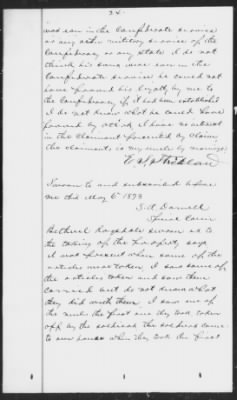 24
was ever in the Confederate service
or any other military service of the
Confederacy or any state I do not
think his sons were ever in the
Confederate service he could not
have proved his loyalty by me to
the Confederacy if it had been established
I do not know what he could have
proved by others I have no interest
in the claim presented by claim
the claimant is my uncle by marriage
Sworn to and subscribed before
me this May 6 1873
Special Com
Bethuel Ragsdale sworn as to
the taking of the property says
I was present when some of the
articles were taken I saw some of
the articles taken and saw them
carried but do not know what
they did with them I saw one of
the mules the first one they took taken
off by the soldiers the soldiers came
to our house when they took the first